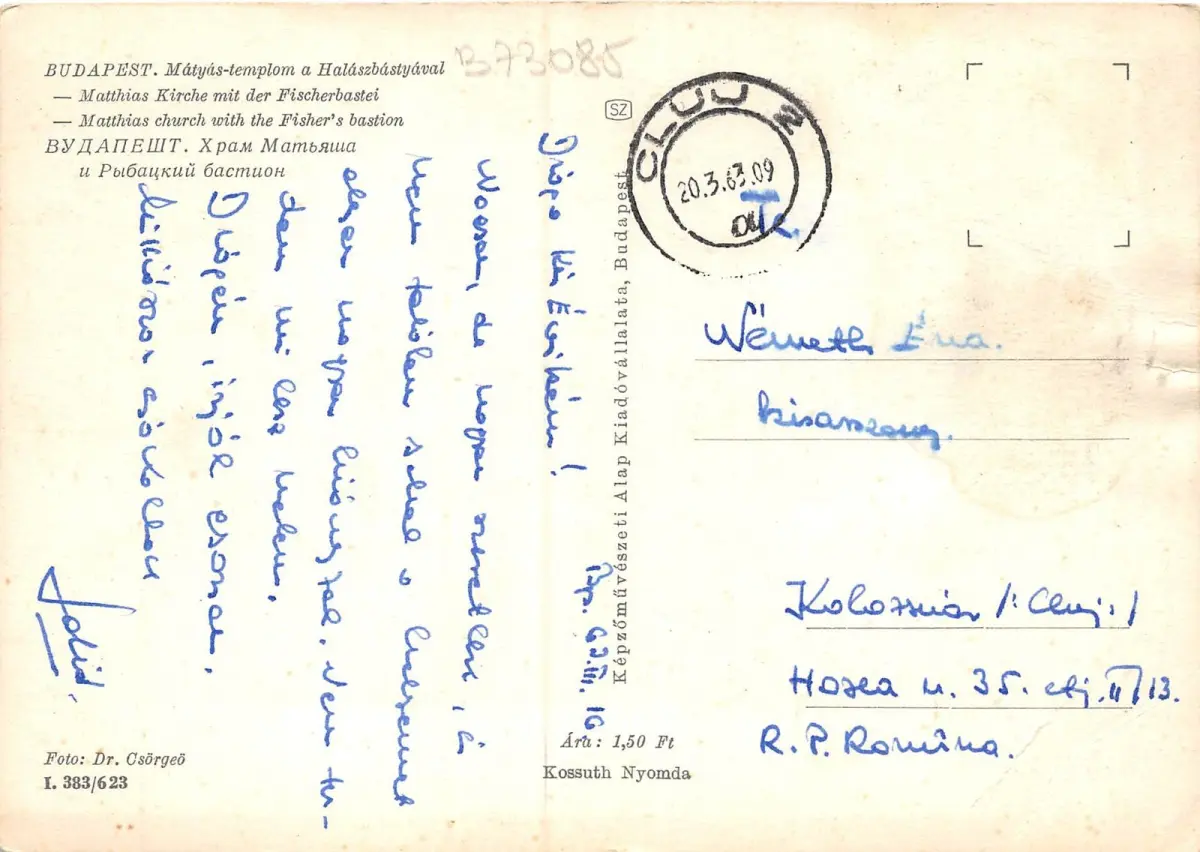 B73085
BUDAPEST. Mátyás-templom a Halászbástyával
— Matthias Kirche mit der Fischerbastei
— Matthias church with the Fisher's bastion
БУДАПЕШТ. Храм Матьяша
и Рыбацкий бастион
Drága kis Évikém!
Bp. 63.III. 16
Nagyon, de nagyon szeretlek, és
nem találom sehol a helyemet
olyan nagyon hiányzol. Nem tu-
dom mi lesz velem.
Drágám, írjál
csókollak
Foto: Dr. Csörgeö
I. 383/623
SZ
Képzőművészeti Alap Kiadóvállalata, Budapest
Ára: 1,50 Ft
Kossuth Nyomda
CLUJ 2
20.3.63.09
Németh Éva.
kisasszony.
Kolozsvár /:Cluj:/
Horea u. 35. etj. II/13.
R. P. Romîna.